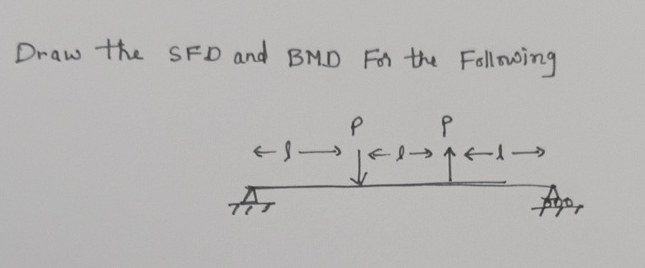 Draw the SFD and BMD For the Following
P P
l l l